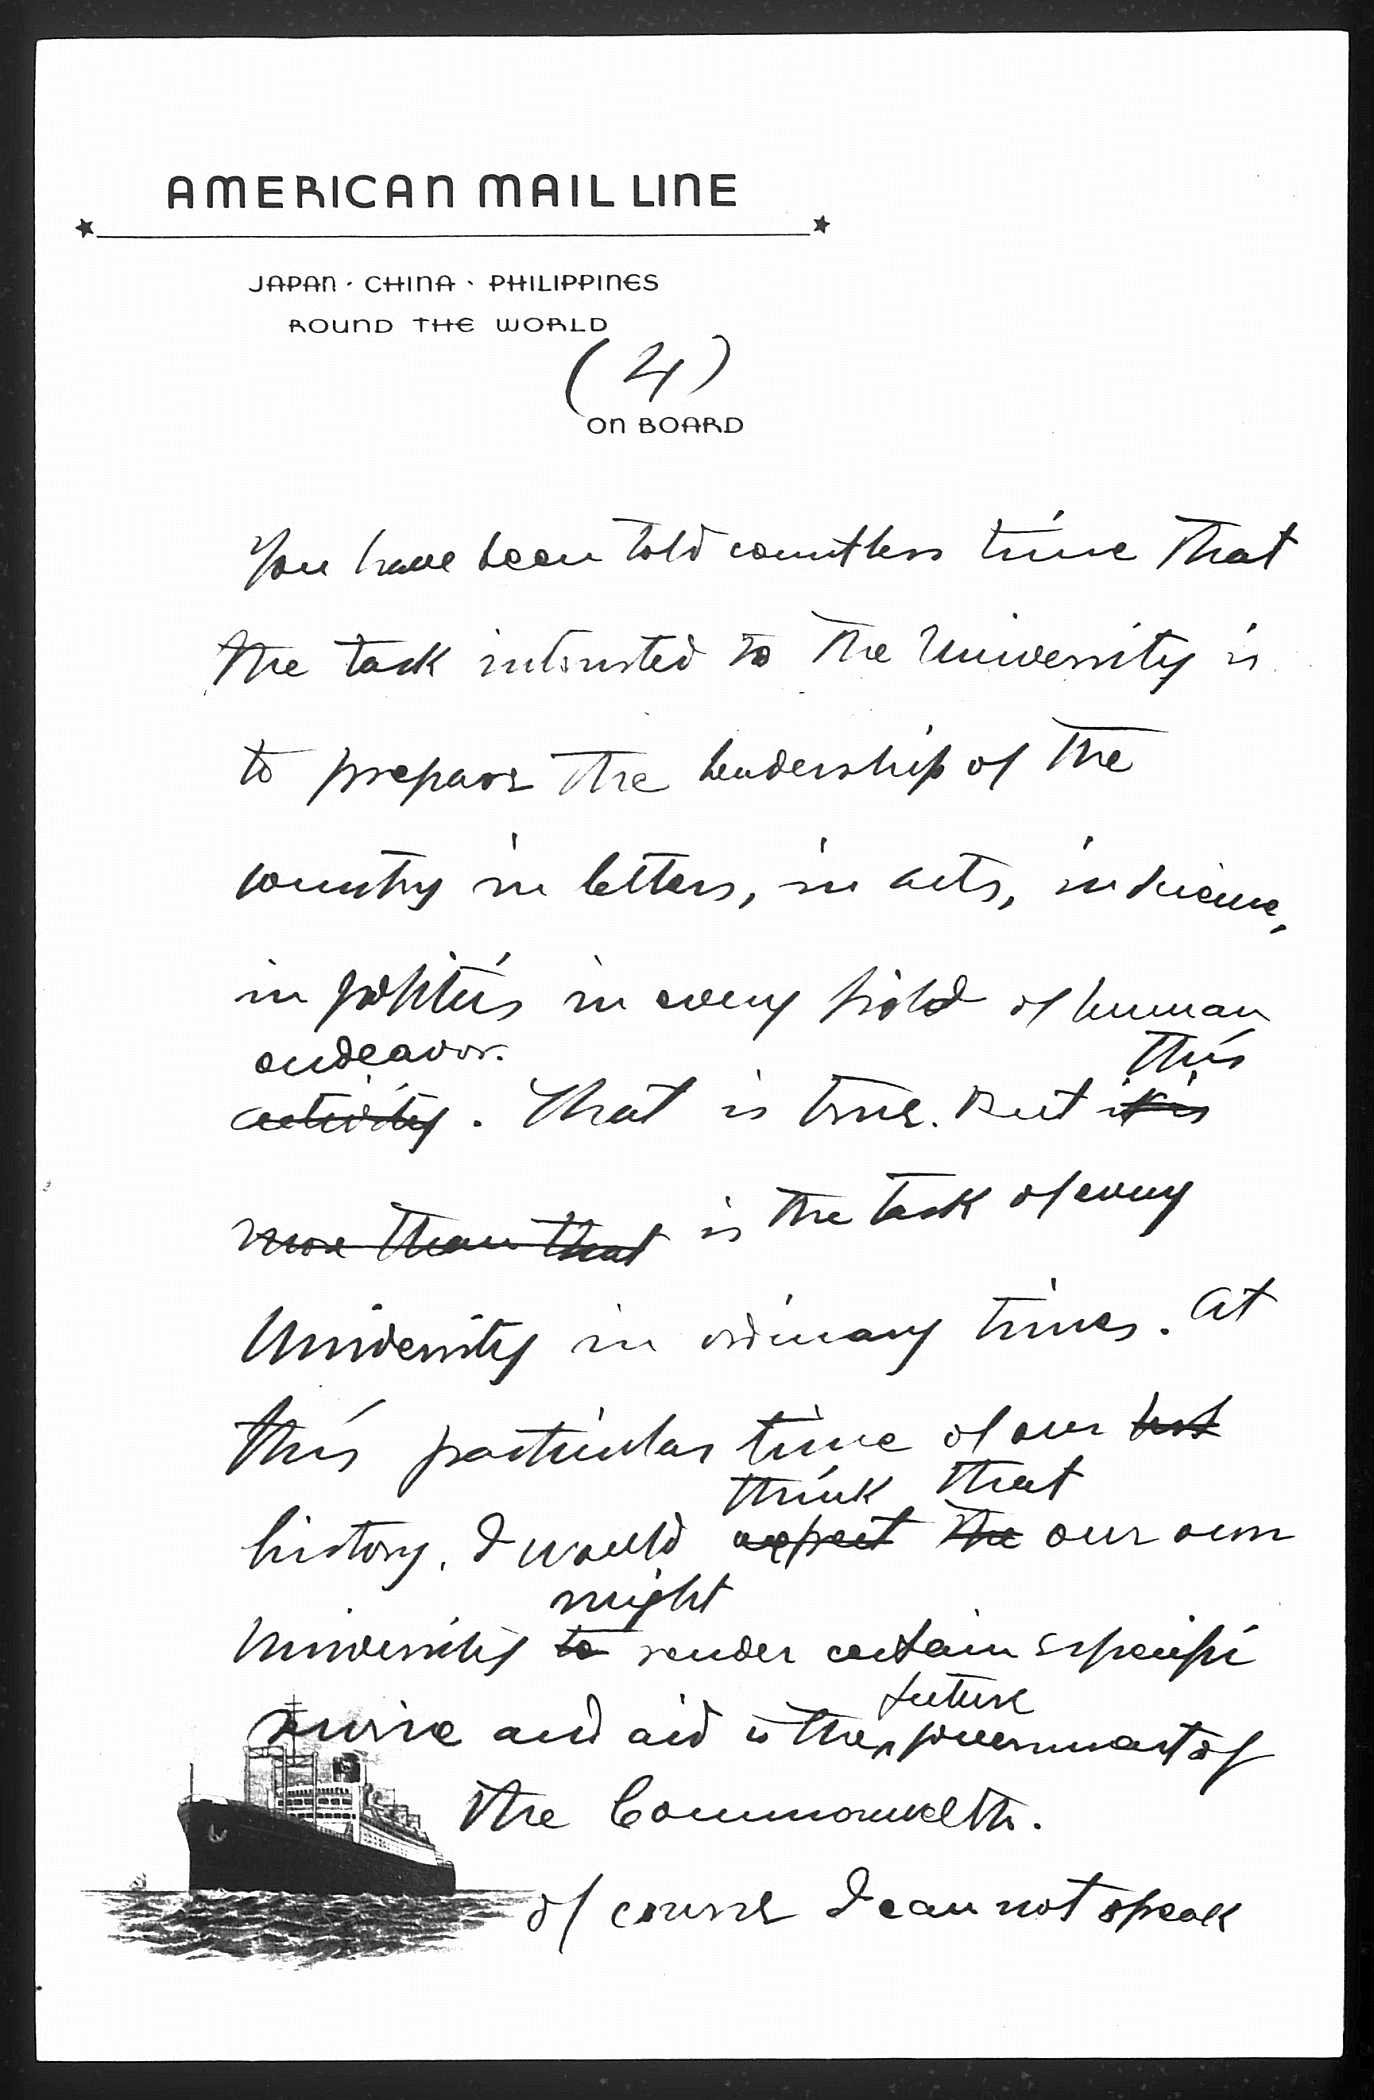 AMERICAN MAIL LINE
JAPAN · CHINA · PHILIPPINES
ROUND THE WORLD
(4)
ON BOARD
You have been told countless time that
the task intrusted to the University is
to prepare the leadership of the
country in letters, in arts, in science,
in politics in every field of human
endeavor. this
activity. That is true. But it is
more than that is the task of every
University in ordinary times. At
this particular time of our hist
think that
history, I would expect the our own
might
University to render certain specific
future
service and aid to the government of
the Commonwelth.
of course I can not speak